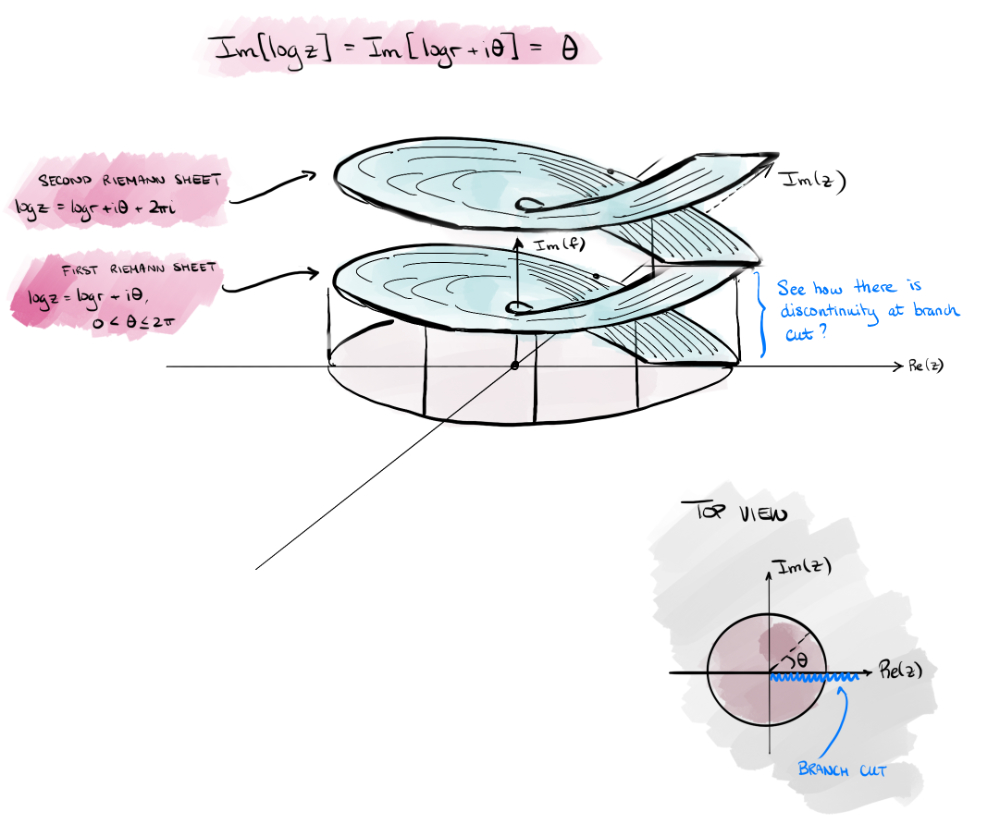 Im[log z] = Im[log r + iθ] = θ
SECOND RIEMANN SHEET
log z = log r + iθ + 2πi
Im(z)
Im(f)
FIRST RIEMANN SHEET
log z = log r + iθ,
0 < θ ≤ 2π
See how there is
discontinuity at branch
cut?
Re(z)
TOP VIEW
Im(z)
θ
Re(z)
BRANCH CUT